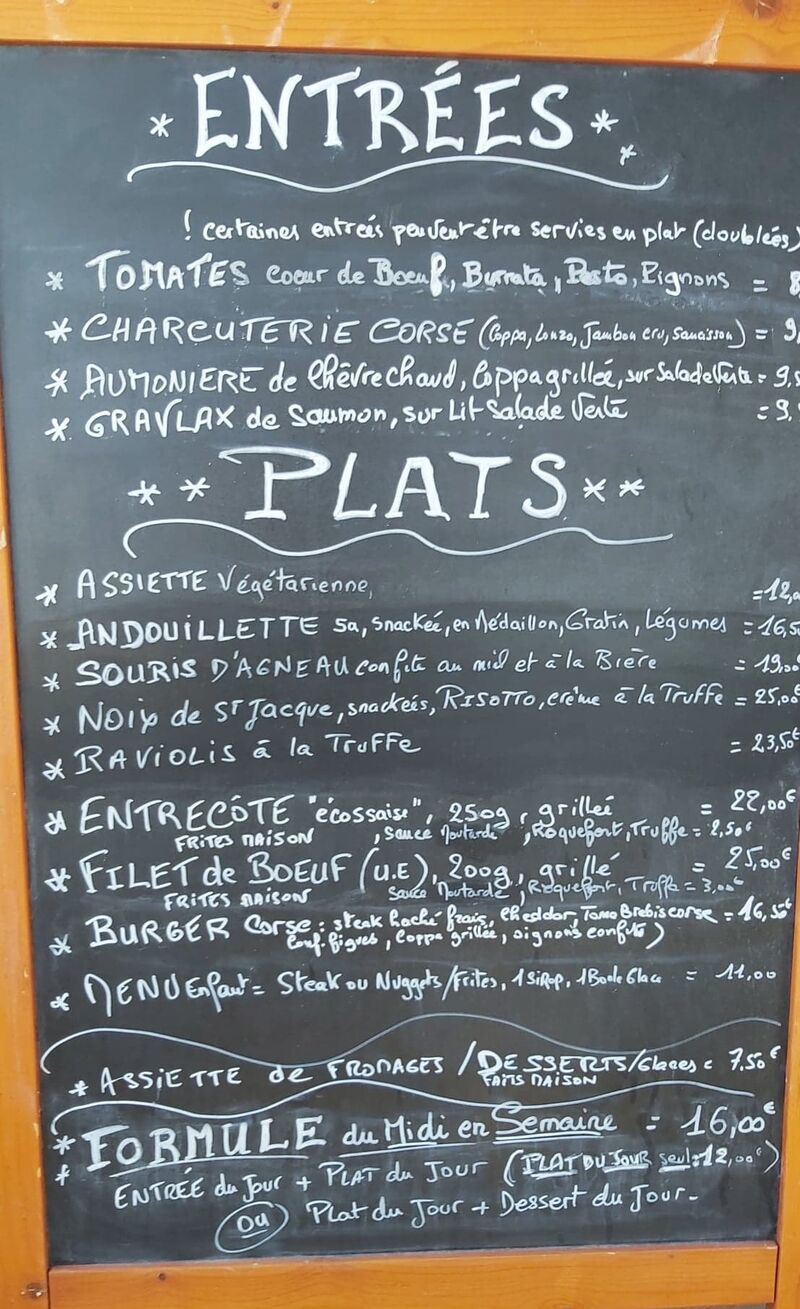 * ENTRÉES *
! certaines entrées peuvent être servies en plat (doublées)
* TOMATES Coeur de Boeuf, Burrata, Pesto, Pignons = 8
* CHARCUTERIE CORSE (Coppa, Lonzo, Jambon cru, Saucisson) = 9,
* AUMONIERE de Chèvre Chaud, Coppa grillée, sur Salade Verte = 9,5
* GRAVLAX de Saumon, sur Lit Salade Verte = 9,
* * PLATS * *
* ASSIETTE Végétarienne, =12,0
* ANDOUILLETTE 5a, snackée, en Médaillon, Gratin, Légumes = 16,50
* SOURIS D'AGNEAU confite au miel et à la Bière = 19,00€
* NOIX de ST Jacque, snackées, RISOTTO, crème à la Truffe = 25,00€
* RAVIOLIS à la Truffe = 23,50€
* ENTRECÔTE "écossaise", 250g, grillée = 22,00€
FRITES MAISON , Sauce Moutarde, Roquefort, Truffe = 2,50€
* FILET de BOEUF (U.E), 200g, grillé = 25,00€
FRITES MAISON Sauce Moutarde, Roquefort, Truffe = 3,00€
* BURGER Corse : steak haché frais, Cheddar, Tome Brebis corse = 16,50€
Conf. figues, Coppa grillée, oignons confits)
* MENU Enfant = Steak ou Nuggets/Frites, 1 Sirop, 1 Boule Glace = 11,00
* ASSIETTE de FROMAGES / DESSERTS/Glaces = 7,50€
FAITS MAISON
* FORMULE du Midi en Semaine = 16,00€
* ENTRÉE du Jour + PLAT du JOUR (PLAT DU JOUR seul: 12,00€)
OU Plat du Jour + Dessert du Jour-